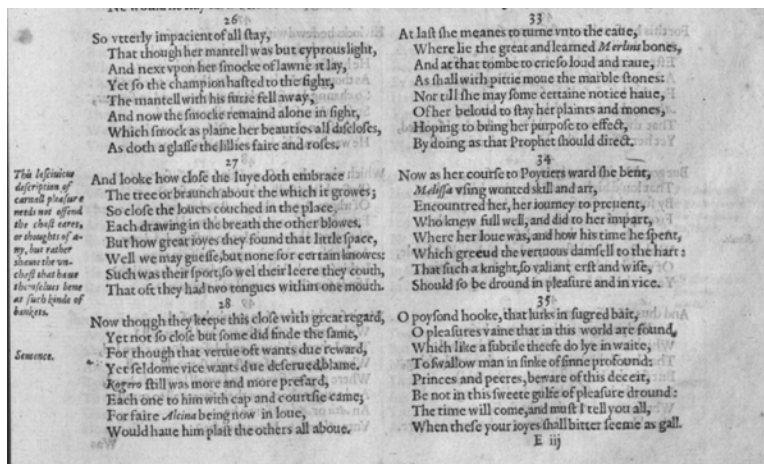 26
So vtterly impacient of all stay,
That though her mantell was but cyprous light,
And next vpon her smocke of lawne it lay,
Yet so the champion hasted to the fight,
The mantell with his furie fell away,
And now the smocke remaind alone in sight,
Which smock as plaine her beauties all discloses,
As doth a glasse the lillies faire and roses.
27
And looke how close the Iuye doth embrace
The tree or braunch about the which it growes;
So close the louers couched in the place,
Each drawing in the breath the other blowes.
But how great ioyes they found that little space,
Well we may guesse, but none for certain knowes:
Such was their sport, so wel their leere they couth,
That oft they had two tongues within one mouth.
28
Now though they keepe this close with great regard,
Yet not so close but some did finde the same,
For though that vertue oft wants due reward,
Yet seldome vice wants due deserued blame.
Rogero still was more and more prefard,
Each one to him with cap and courtsie came;
For faire Alcina being now in loue,
Would haue him plast the others all aboue.
This lasciuious
description of
carnall pleasure
needs not offend
the chast eares,
or thoughts of a-
ny, but rather
shame the vn-
chast that haue
themselues bene
at such kinde of
bankets.
Sentence.
33
At last she meanes to turne vnto the caue,
Where lie the great and learned Merlins bones,
And at that tombe to crie so loud and raue,
As shall with pittie moue the marble stones:
Nor till she may some certaine notice haue,
Of her belou'd to stay her plaints and mones,
Hoping to bring her purpose to effect,
By doing as that Prophet should direct.
34
Now as her course to Poytiers ward she bent,
Melissa vsing wonted skill and art,
Encountred her, her iourney to preuent,
Who knew full well, and did to her impart,
Where her loue was, and how his time he spent,
Which greeud the vertuous damsell to the hart:
That such a knight, so valiant erst and wise,
Should so be dround in pleasure and in vice.
35
O poysond hooke, that lurks in sugred bait,
O pleasures vaine that in this world are found,
Which like a subtile theefe do lye in waite,
To swallow man in sinke of sinne profound:
Princes and peeres, beware of this deceit,
Be not in this sweete gulfe of pleasure dround:
The time will come, and must I tell you all,
When these your ioyes shall bitter seeme as gall.
E iij